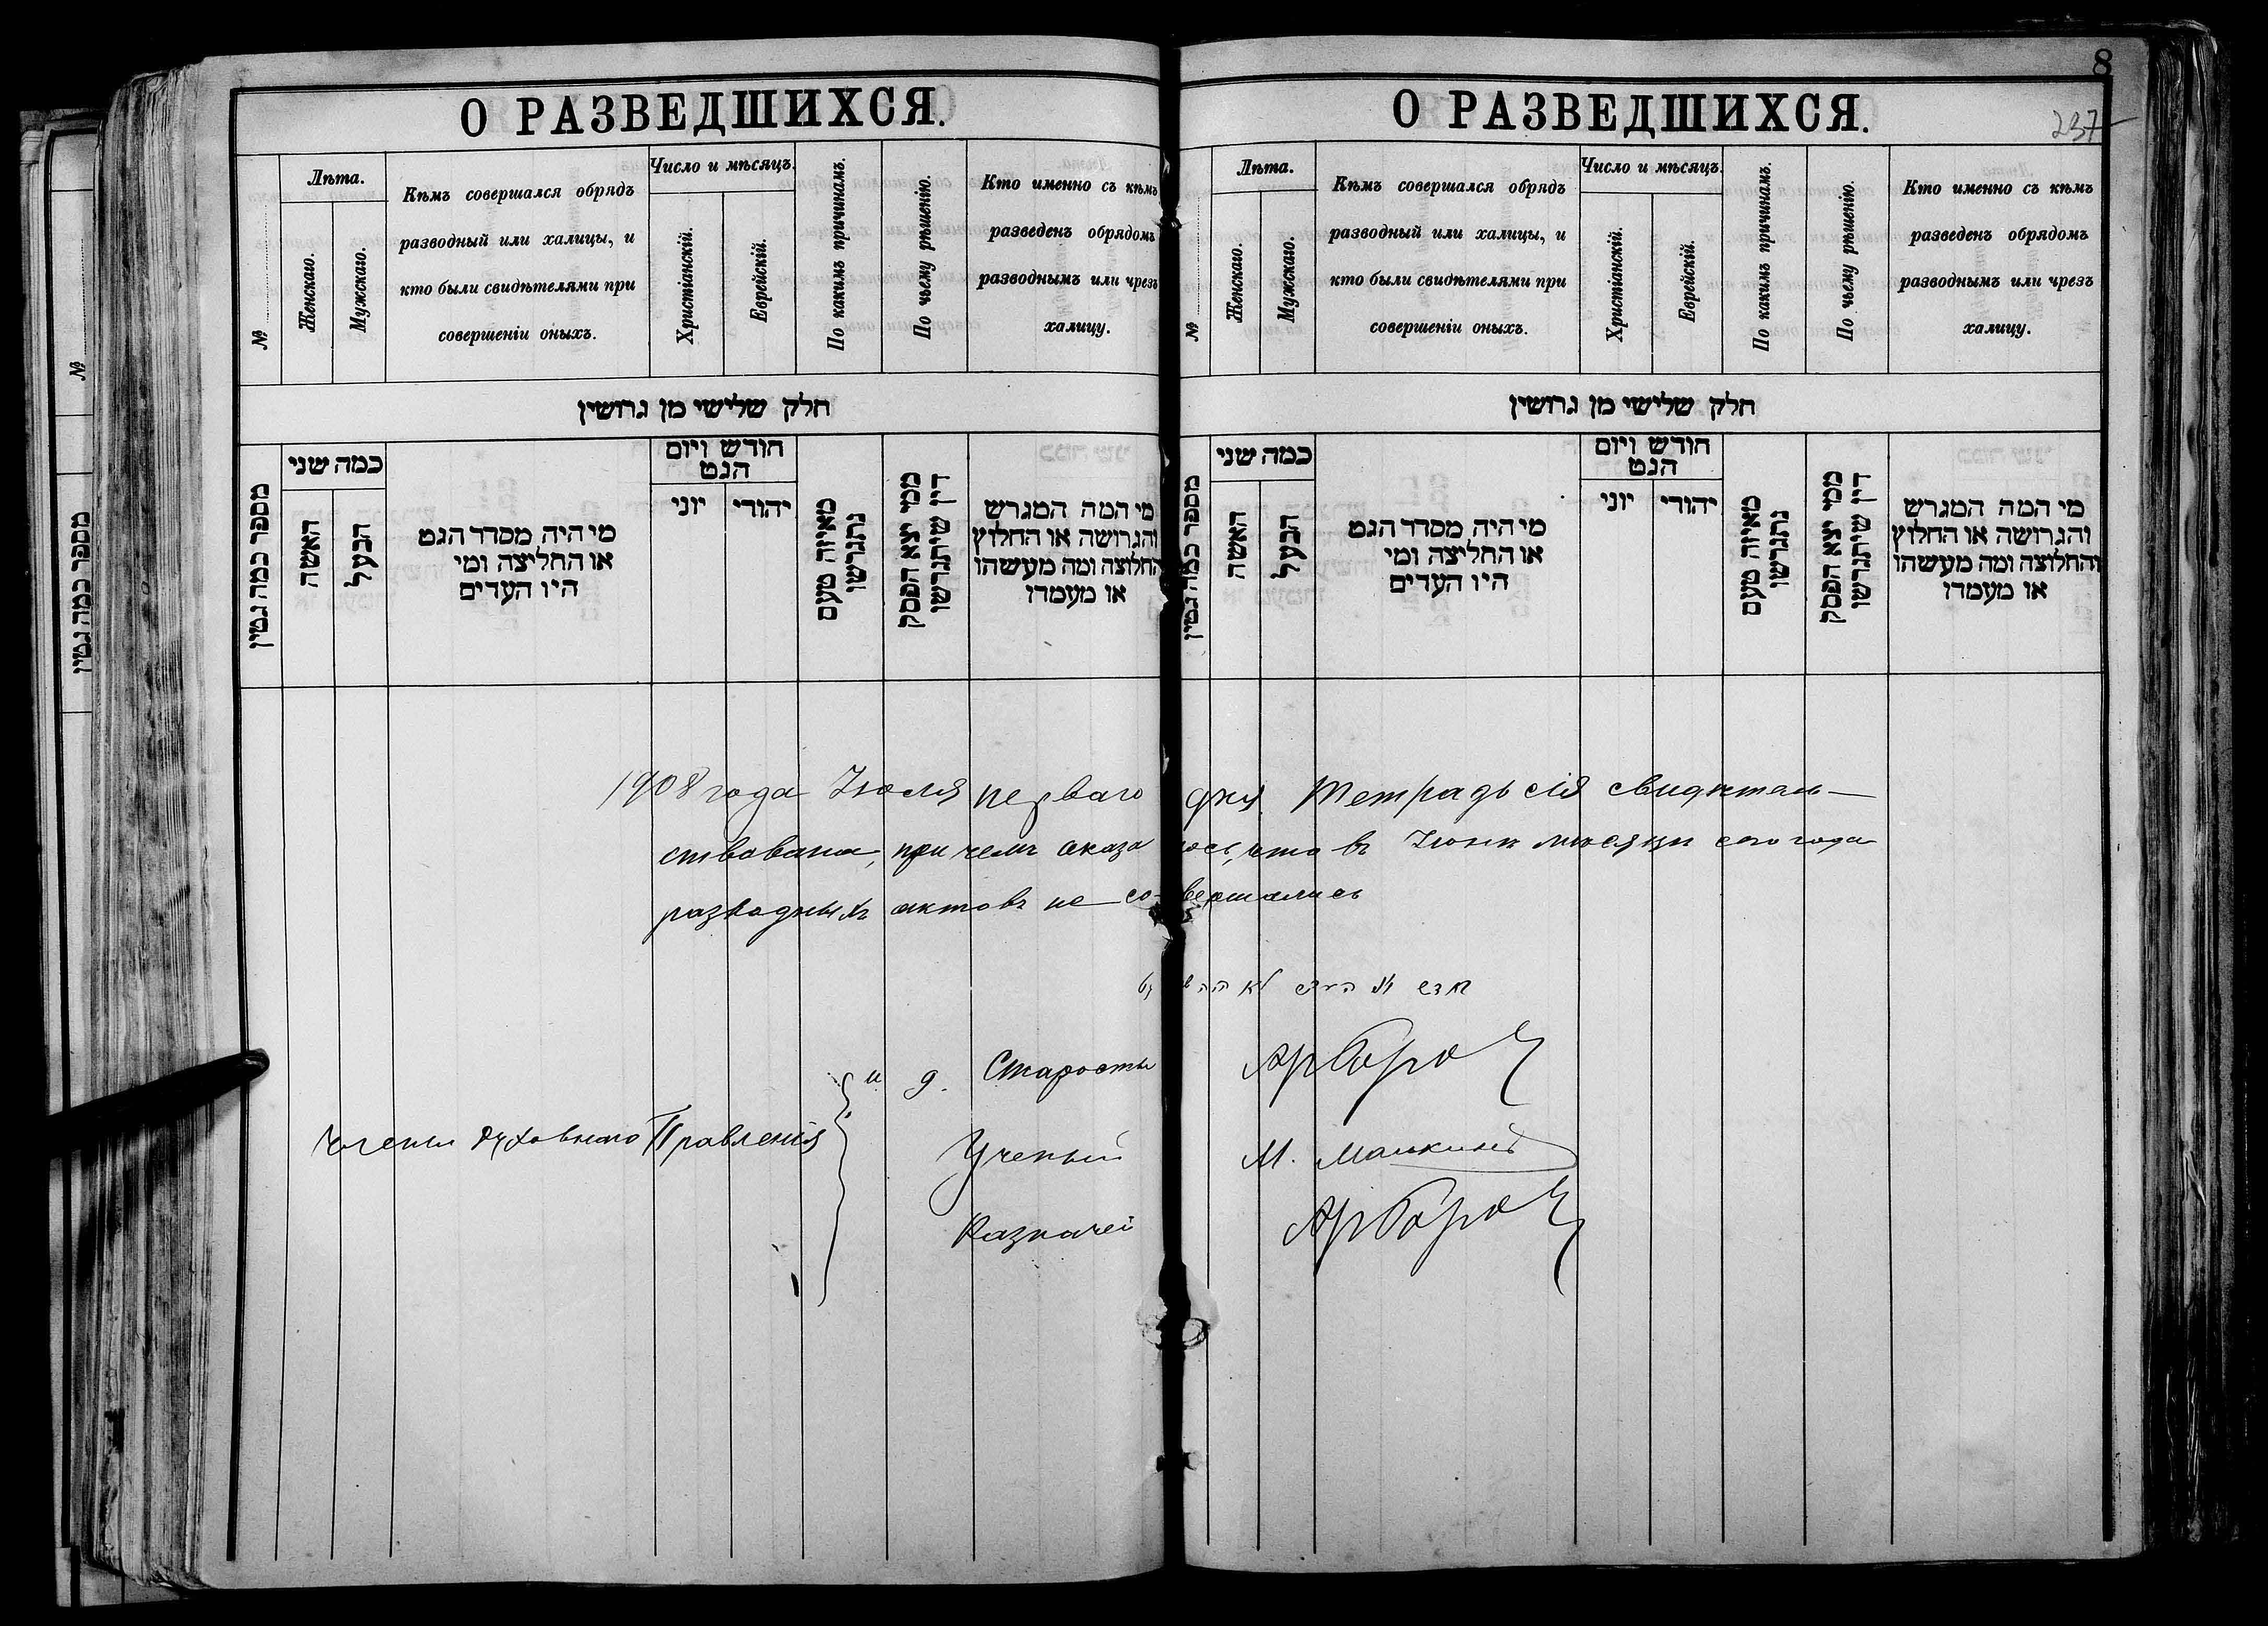 8
237
О РАЗВЕДШИХСЯ.
№
Лѣта.
Женскаго.
Мужскаго.
Кѣмъ совершался обрядъ
разводный или халицы, и
кто были свидѣтелями при
совершеніи оныхъ.
Число и мѣсяцъ.
Христіанскій.
Еврейскій.
По какимъ причинамъ.
По чьему рѣшенію.
Кто именно съ кѣмъ
разведенъ обрядомъ
разводнымъ или чрезъ
халицу.
חלק שלישי מן גרושין
מספר כמה גטין
כמה שני
האשה
הבעל
מי היה מסדר הגט
או החליצה ומי
היו העדים
חודש ויום
הגט
יוני
יהודי
מאיזה טעם
נתגרשו
ממי יצא הפסק
דין שיתגרשו
מי המה המגרש
והגרושה או החלוץ
והחלוצה ומה מעשהו
או מעמדו
О РАЗВЕДШИХСЯ.
№
Лѣта.
Женскаго.
Мужскаго.
Кѣмъ совершался обрядъ
разводный или халицы, и
кто были свидѣтелями при
совершеніи оныхъ.
Число и мѣсяцъ.
Христіанскій.
Еврейскій.
По какимъ причинамъ.
По чьему рѣшенію.
Кто именно съ кѣмъ
разведенъ обрядомъ
разводнымъ или чрезъ
халицу.
חלק שלישי מן גרושין
מספר כמה גטין
כמה שני
האשה
הבעל
מי היה מסדר הגט
או החליצה ומי
היו העדים
חודש ויום
הגט
יוני
יהודי
מאיזה טעם
נתגרשו
ממי יצא הפסק
דין שיתגרשו
מי המה המגרש
והגרושה או החלוץ
והחלוצה ומה מעשהו
או מעמדו
1908 года Іюля перваго дня Тетрадь сія свидѣтель-
ствована, при чемъ оказалось, что въ Іюнѣ мѣсяцѣ сего года
разводныхъ актовъ не совершались
Члены Духовнаго Правленія
и д. Старосты
Ученый М. Малкинъ
Казначей
№
מספר כמה גטין